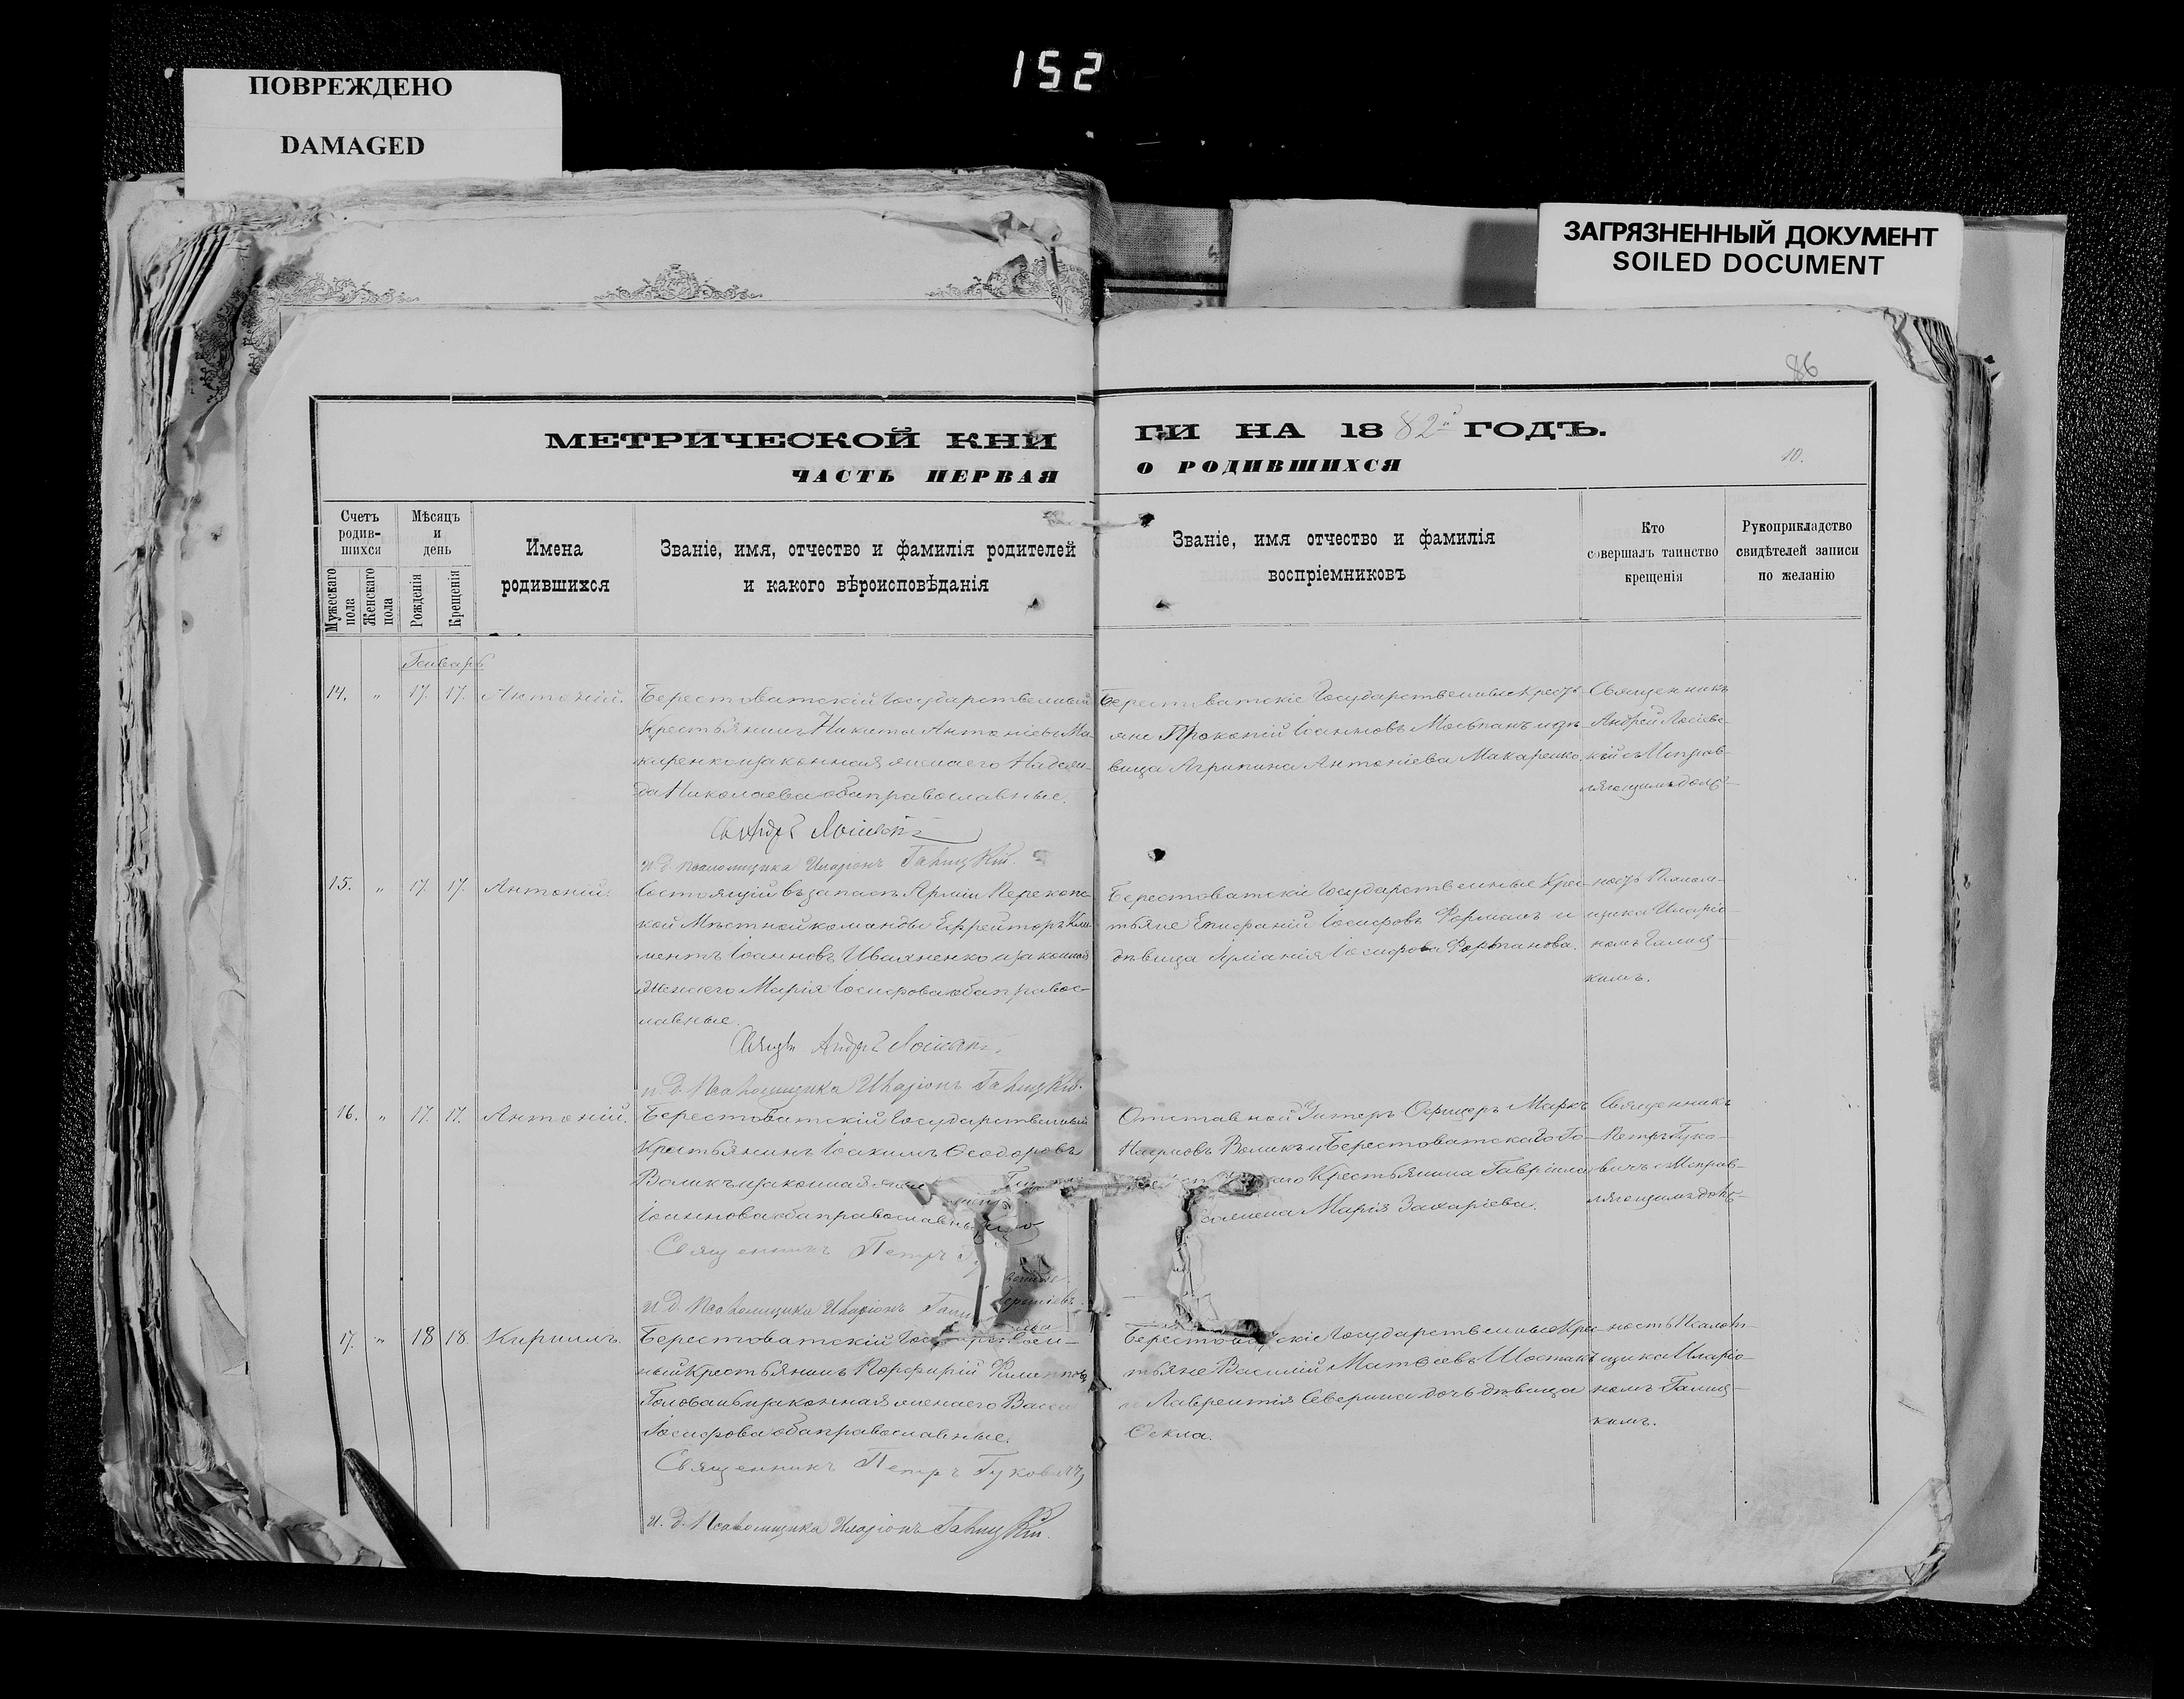 152
ПОВРЕЖДЕНО
DAMAGED
ЗАГРЯЗНЕННЫЙ ДОКУМЕНТ
SOILED DOCUMENT
86
МЕТРИЧЕСКОЙ КНИ
ГИ НА 1882й ГОДЪ.
ЧАСТЬ ПЕРВАЯ
О РОДИВШИХСЯ
10.
Счетъ
родив-
шихся
Мужескаго
пола
Женскаго
пола
Мѣсяцъ
и
день
Рожденія
Крещенія
Имена
родившихся
Званіе, имя, отчество и фамилія родителей
и какого вѣроисповѣданія
Званіе, имя отчество и фамилія
воспріемниковъ
Кто
совершалъ таинство
крещенія
Рукоприкладство
свидѣтелей записи
по желанію
Генварь
14. " 17. 17. Антоній.
Берестоватскій Государственный
Крестьянинъ Никита Антоніевъ Ма-
каренко и законная жена его
Николаева оба православные.
Берестоватскіе Государственные Кресть-
яне Прокопій Іоанновъ и дѣ-
вица Агрипина Антоніева Макаренко.
Священникъ
Андрей Лосіевс-
кій съ Исправ-
ляющимъ долж-
и. д. псаломщика Иларіонъ Галицкій.
15. " 17. 17. Антоній.
Состоящій въ запасѣ Арміи Перекопс-
кой Мѣстной команды Ефрейторъ Кли-
ментъ Іоанновъ Иваненко и законная
жена его Марія Іосифова оба правос-
лавные.
Берестоватскіе Государственные Крес-
тьяне Епифаній Іосифовъ и
дѣвица Іосифова
ность Псалом-
щика Иларіо-
номъ Галиц-
кимъ.
и. д. Псаломщика Иларіонъ Галицкій.
16. " 17. 17. Антоній.
Берестоватскій Государственный
Крестьянинъ Іоакимъ Ѳеодоровъ
Великъ и законная
Іоаннова оба православные
Священникъ Петръ
и. д. Псаломщика Иларіонъ
Отставной Унтеръ Офицеръ Маркъ
Великъ и Берестоватскаго Го-
Крестьянина Гавріила
Марія Захаріева.
Священникъ
Петръ Гуко-
вичъ съ Исправ-
ляющимъ долж-
17. " 18 18 Кириллъ.
Берестоватскій
ный Крестьянинъ Порфирій Филипповъ
Головань и законная жена его Васса
Іосифова оба православные.
Берестоватскіе Государственные Крес-
тьяне Василій Матвеевъ Шостакъ
и Лаврентія Северина дочь дѣвица
Ѳекла.
ность Псалом-
щика Иларіо-
номъ Галиц-
кимъ.
Священникъ Петръ Гуковичъ
и. д. Псаломщика Иларіонъ Галицкій.